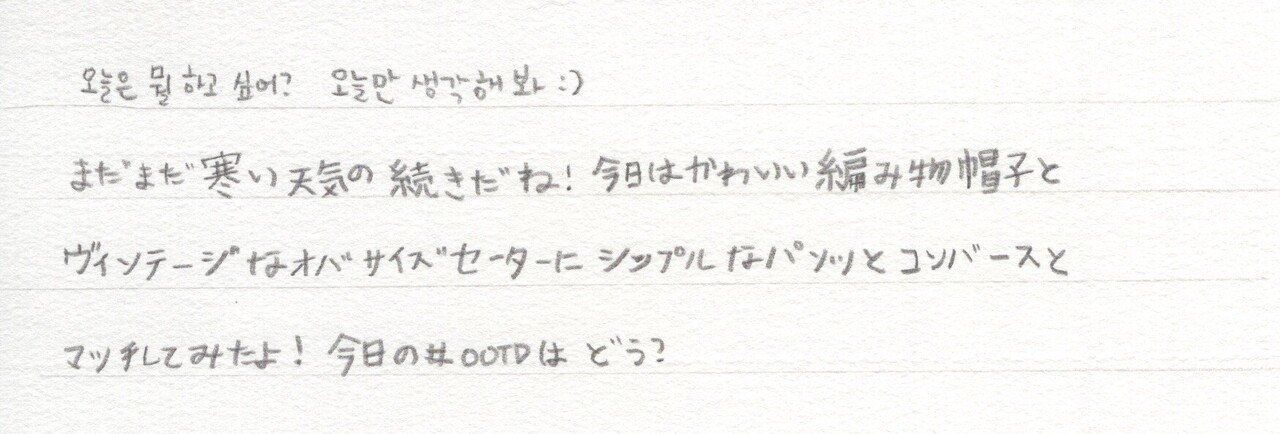 오늘은 뭘 하고 싶어? 오늘만 생각해 봐 :)
まだまだ寒い天気の続きだね! 今日はかわいい編み物帽子と
ヴィンテージなオバサイズセーターに シップルなパンツと コンバースと
マッチしてみたよ! 今日の#OOTDは どう?